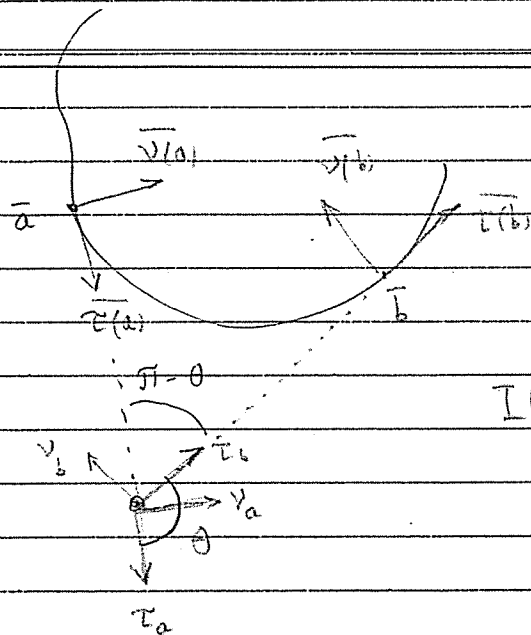 ν̄(a)
ν̄(b)
ā
τ̄(b)
τ̄(a)
b̄
π - θ
I
ν_b
τ_b
ν_a
θ
τ_a